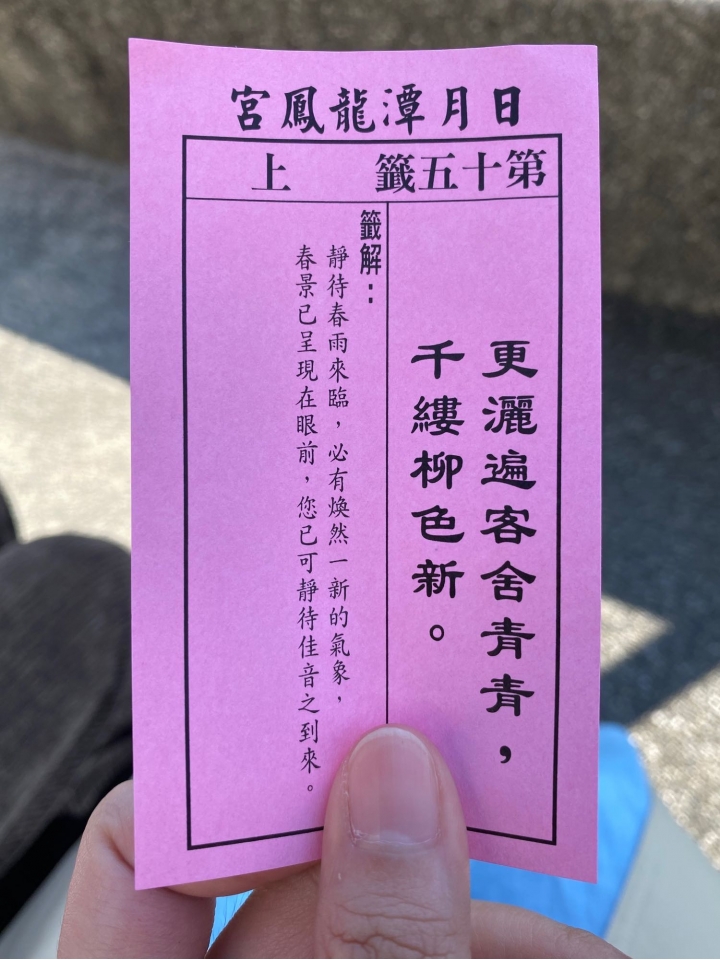 日月潭龍鳳宮
第十五籤 上
更灑遍客舍青青，
千縷柳色新。
籤解：
靜待春雨來臨，必有煥然一新的氣象，
春景已呈現在眼前，您已可靜待佳音之到來。